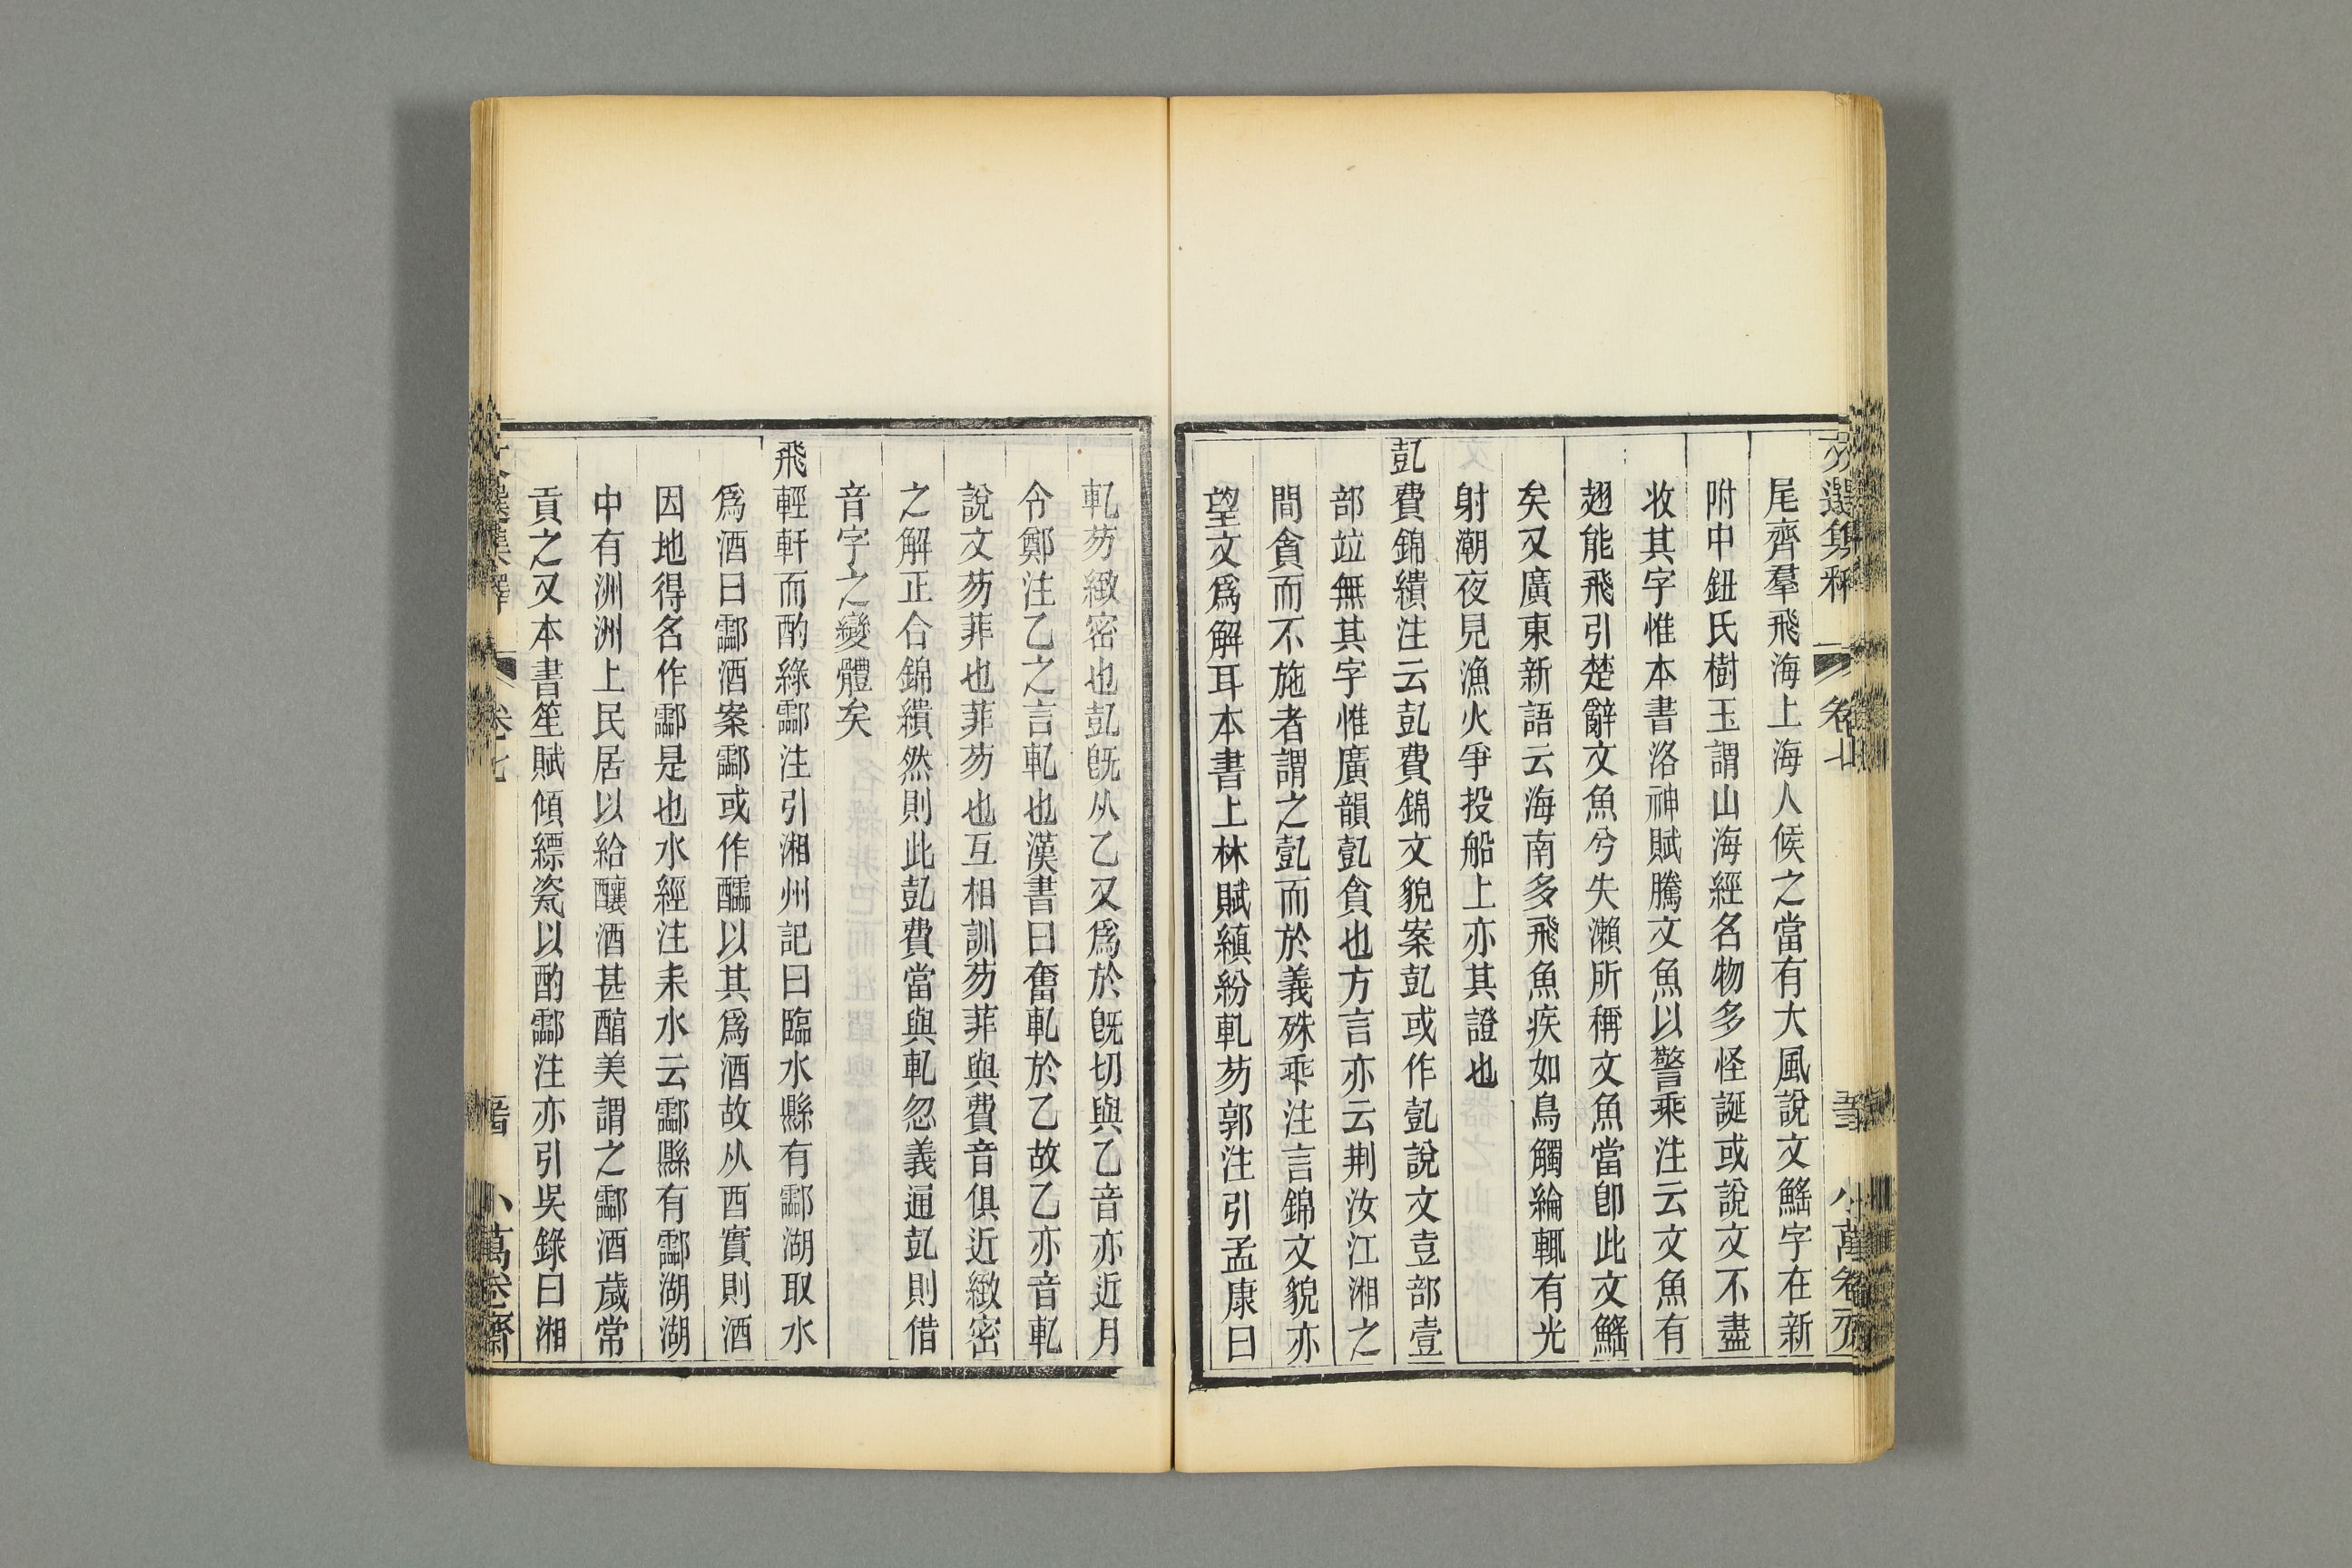 文選集釋
卷七
小萬卷齋
尾齊羣飛海上海人候之當有大風說文鰩字在新
附中鈕氏樹玉謂山海經名物多怪誕或說文不盡
收其字惟本書洛神賦騰文魚以警乘注云文魚有
翅能飛引楚辭文魚兮失瀨所稱文魚當卽此文鰩
矣又廣東新語云海南多飛魚疾如鳥觸綸輒有光
射潮夜見漁火爭投船上亦其證也
㔯費錦繢注云㔯費錦文貌案㔯或作㔯說文壴部壹
部竝無其字惟廣韻㔯貪也方言亦云荆汝江湘之
間貪而不施者謂之㔯而於義殊乖注言錦文貌亦
望文爲解耳本書上林賦縝紛軋芴郭注引孟康曰
軋芴緻密也㔯旣从乙又爲於旣切與乙音亦近月
令鄭注乙之言軋也漢書曰奮軋於乙故乙亦音軋
說文芴菲也菲芴也互相訓芴菲與費音俱近緻密
之解正合錦繢然則此㔯費當與軋忽義通㔯則借
音字之變體矣
飛輕軒而酌綠酃注引湘州記曰臨水縣有酃湖取水
爲酒曰酃酒案酃或作醽以其爲酒故从酉實則酒
因地得名作酃是也水經注耒水云酃縣有酃湖湖
中有洲洲上民居以給釀酒甚醕美謂之酃酒歲常
貢之又本書笙賦傾縹瓷以酌酃注亦引吳錄曰湘
文選集釋
卷七
小萬卷齋